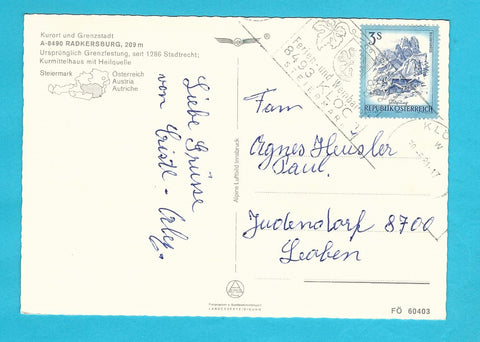 Kurort und Grenzstadt
A-8490 RADKERSBURG, 209 m
Ursprünglich Grenzfestung, seit 1286 Stadtrecht;
Kurmittelhaus mit Heilquelle
Steiermark
Österreich
Austria
Autriche
Liebe Grüsse
von Christl - Erley
Alpine Luftbild Innsbruck
Ferien- und Weindorf
8493 KLÖCH
STEIERMARK
3 S
REPUBLIK ÖSTERREICH
Fam
Agnes Heusler
Paul.
Judendorf 8700
Leoben
FÖ 60403